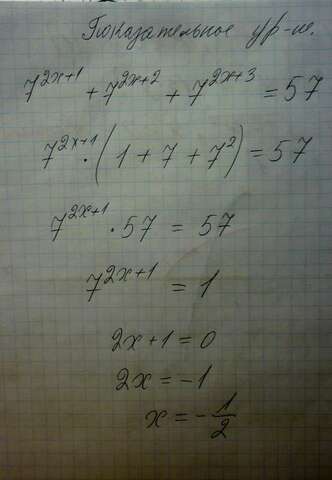 Показательное ур-ие.
7^{2x+1} + 7^{2x+2} + 7^{2x+3} = 57
7^{2x+1} · (1 + 7 + 7^2) = 57
7^{2x+1} · 57 = 57
7^{2x+1} = 1
2x + 1 = 0
2x = -1
x = -\frac{1}{2}